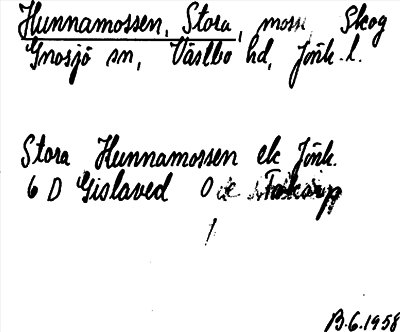 Hunnamossen, Stora, mosse Skog
Gnosjö sn, Västbo hd, Jönk. l.
Stora Hunnamossen ek Jönk.
6 D Gislaved 0
1
B.6.1958